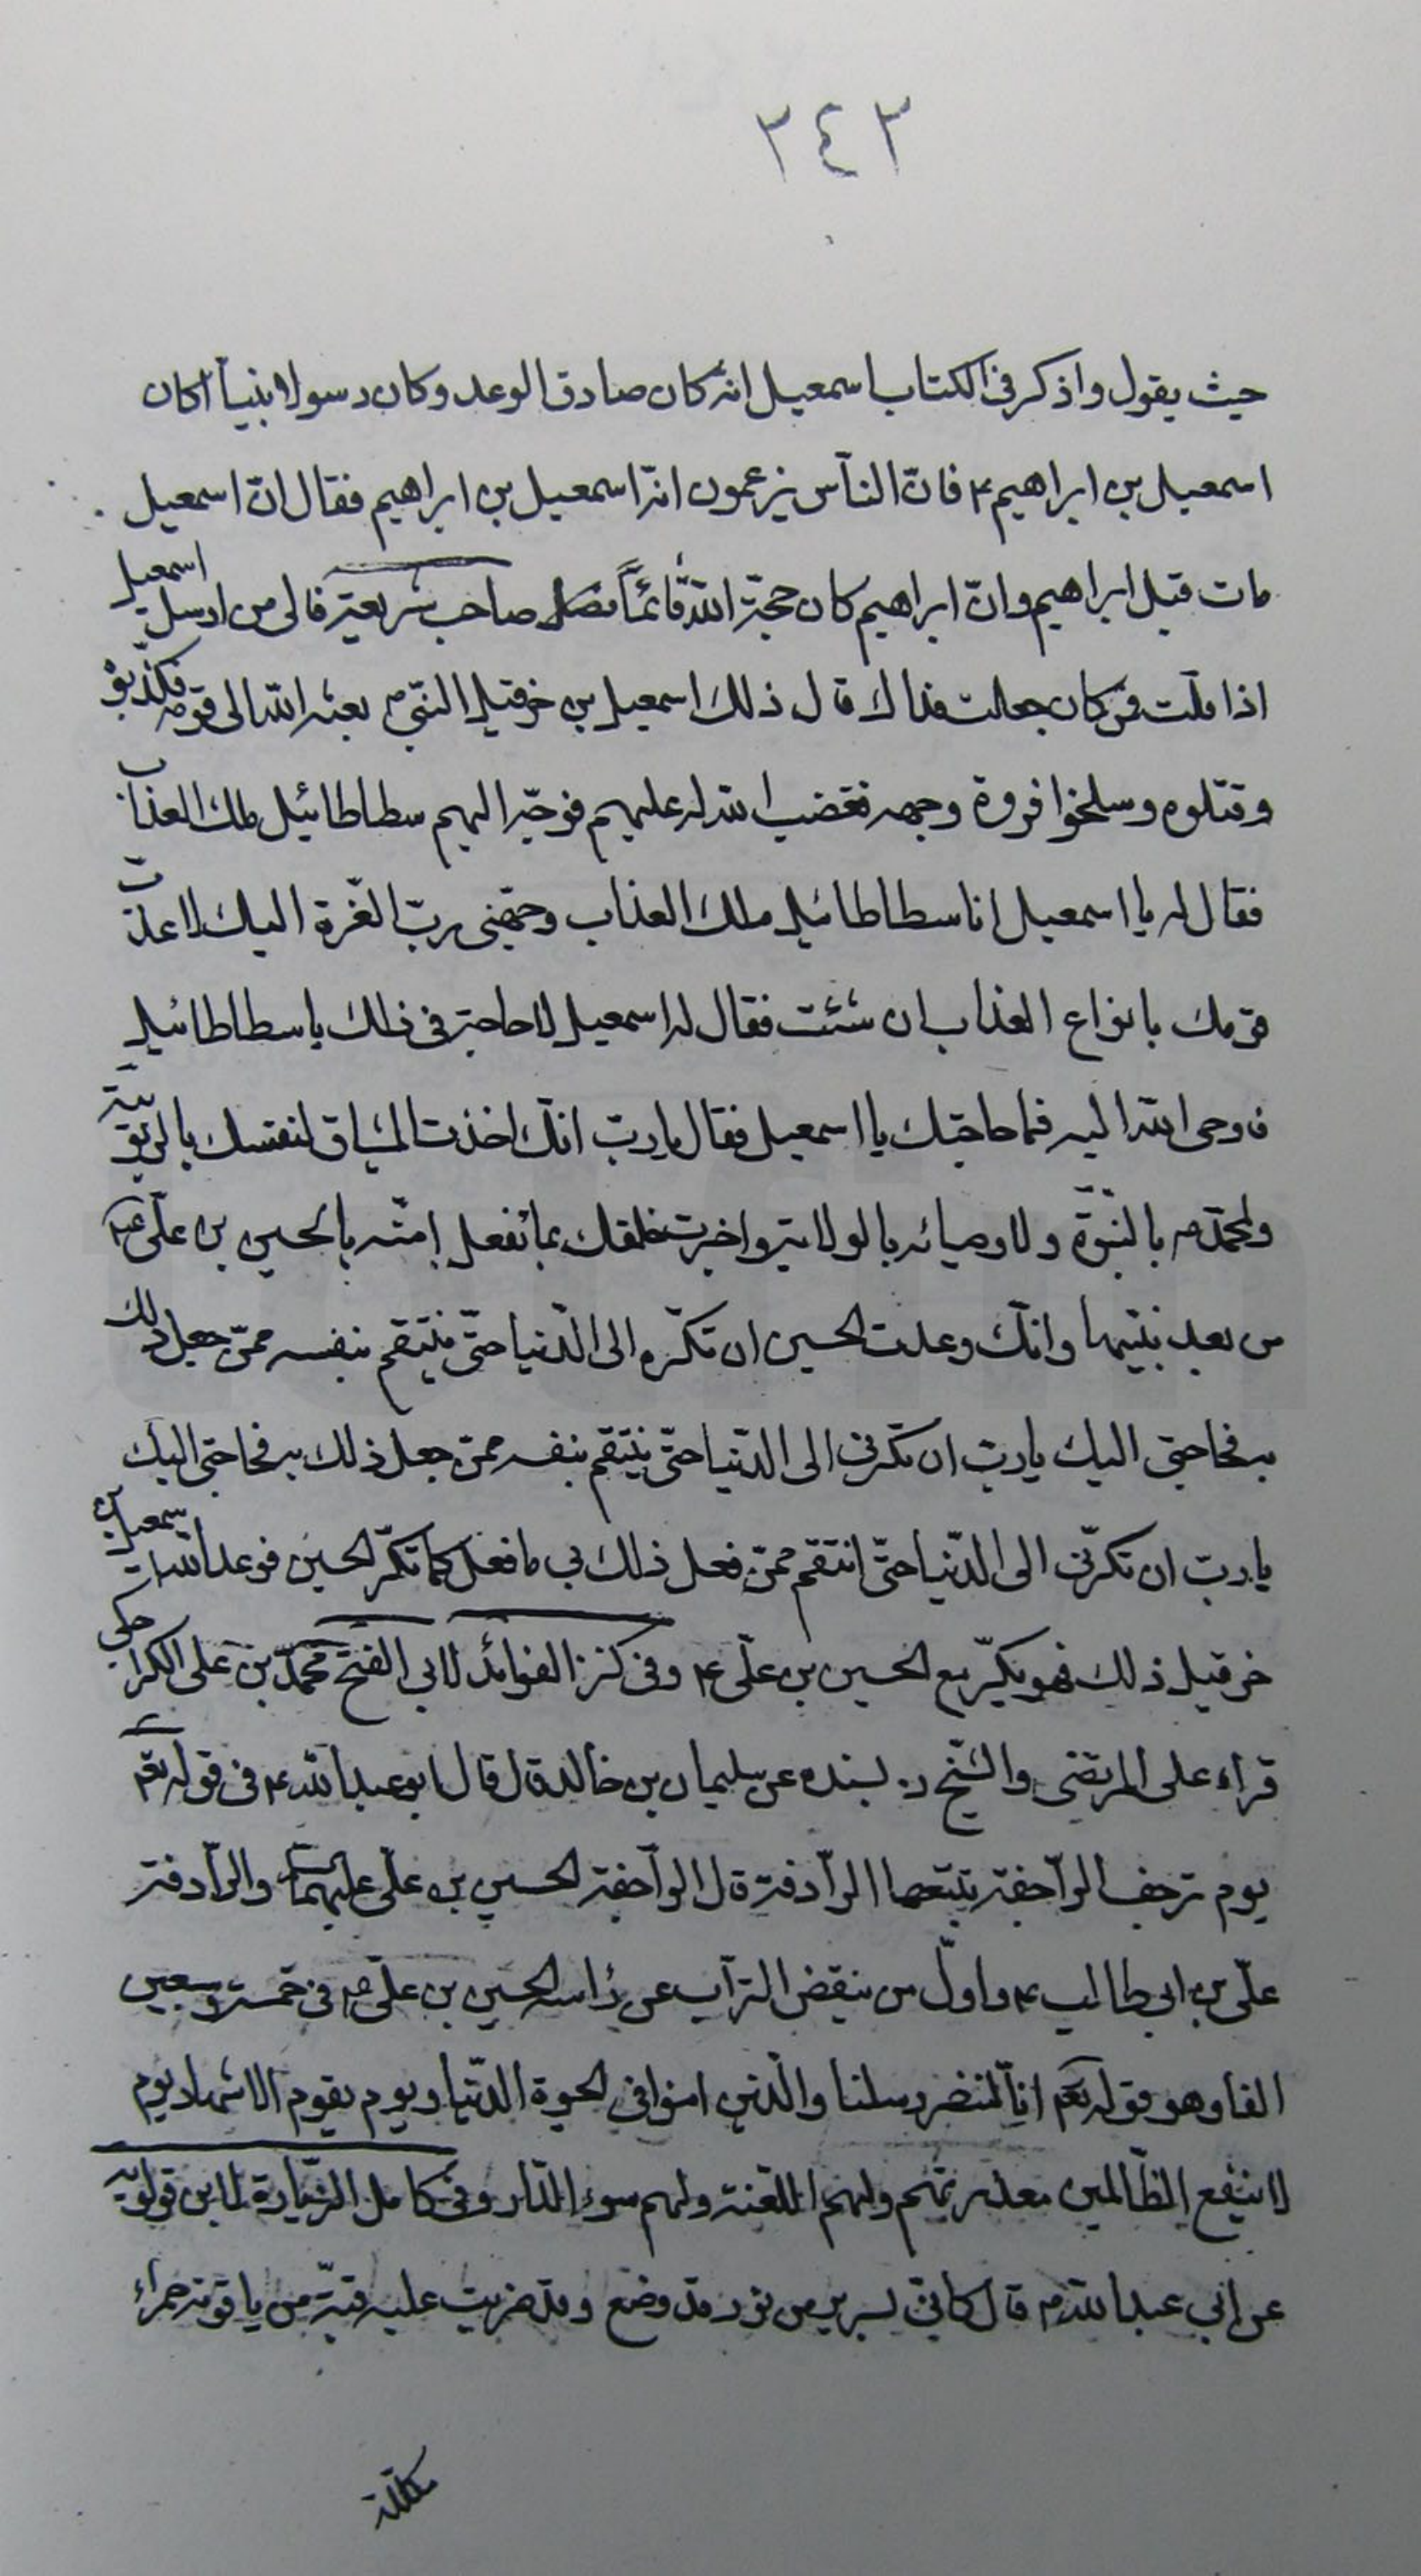 ٢٤٢
حيث يقول واذكر فى الكتاب اسمعيل انه كان صادق الوعد وكان رسولا نبيا أكان
اسمعيل بن ابراهيم ع فانّ النّاس يزعمون انّه اسمعيل بن ابراهيم فقال انّ اسمعيل
مات قبل ابراهيم وانّ ابراهيم كان حجّة الله قائمًا صاحب شريعة فالى من ارسل اسمعيل
اذا قلت فمن كان جعلت فداك قال ذلك اسمعيل بن خرقيل النّبىّ بعثه الله الى قومه فكذّبوه
وقتلوه وسلخوا فروة وجهه فغضب الله له عليهم فوجّه اليهم سطاطائيل ملك العذاب
فقال له يا اسمعيل انا سطاطائيل ملك العذاب وجّهنى ربّ العزّة اليك لاعذّب
قومك بانواع العذاب ان شئت فقال له اسمعيل لا حاجة فى ذلك يا سطاطائيل
فاوحى الله اليه فما حاجتك يا اسمعيل فقال يا ربّ انّك اخذت الميثاق لنفسك بالربوبيّة
ولمحمّد ص بالنبوّة ولاوصيائه بالولاية واخبرت خلقك بما تفعل امّته بالحسين بن علىّ ع
من بعد نبيّها وانّك وعدت الحسين ان تكرّه الى الدّنيا حتّى ينتقم بنفسه ممّن جعل ذلك
به فحاجتى اليك يا ربّ ان تكرّنى الى الدّنيا حتّى ينتقم بنفسه ممّن جعل ذلك به فحاجتى اليك
يا ربّ ان تكرّنى الى الدّنيا حتّى انتقم ممّن فعل ذلك بى ما فعل كما تكرّ الحسين فوعد الله اسمعيل بن
خرقيل ذلك فهو يكرّ مع الحسين بن علىّ ع وفى كنز الفوائد لابى الفتح محمّد بن على الكراجكى
قراء على المرتضى والشّيخ ره بسنده عن سليمان بن خالد قال قال ابو عبد الله ع فى قوله تعم
يوم ترجف الرّاجفة تتبعها الرّادفة قال الرّاجفة الحسين بن علىّ عليهما السلام والرّادفة
علىّ بن ابى طالب ع واوّل من ينقض التراب عن رأسه الحسين بن علىّ ع فى خمسة وسبعين
الفا وهو قوله تعم انّا لننصر رسلنا والّذين امنوا فى الحيوة الدّنيا ويوم يقوم الاشهاد يوم
لا ينفع الظّالمين معذرتهم ولهم اللّعنة ولهم سوء الدّار وفى كامل الزّيارة لابن قولويه
عن ابى عبد الله ع قال كانّى بسرير من نور قد وضع وقد ضربت عليه قبّة من ياقوتة حمراء
مكللة